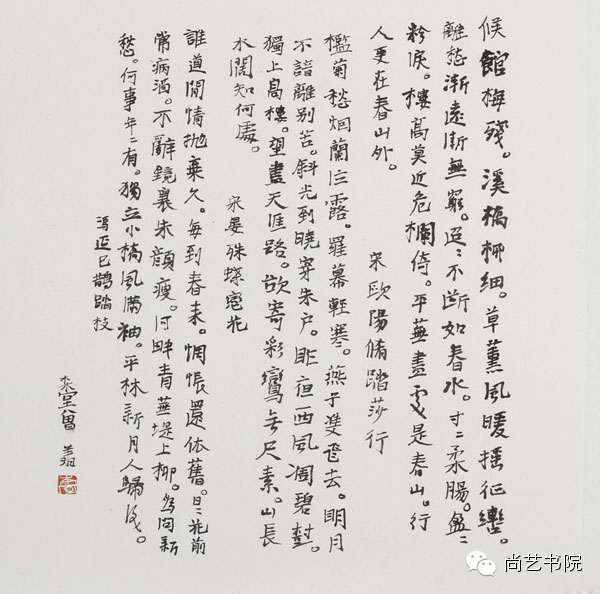 候館梅殘。溪橋柳細。草薰風暖搖征轡。
離愁漸遠漸無窮。迢〻不斷如春水。寸〻柔腸。盈〻
粉淚。樓高莫近危欄倚。平蕪盡處是春山。行
人更在春山外。
宋歐陽脩踏莎行
檻菊愁烟蘭泣露。羅幕輕寒。燕子雙飛去。明月
不諳離別苦。斜光到曉穿朱戶。昨夜西風凋碧樹。
獨上高樓。望盡天涯路。欲寄彩鸞无尺素。山長
水闊知何處。
宋晏殊蝶戀花
誰道閒情抛棄久。每到春来。惆悵還依舊。日〻花前
常病酒。不辭鏡裏朱顏瘦。河畔青蕪堤上柳。為問新
愁。何事年〻有。獨立小橋風滿袖。平林新月人歸後。
馮延巳鵲踏枝
尚艺书院